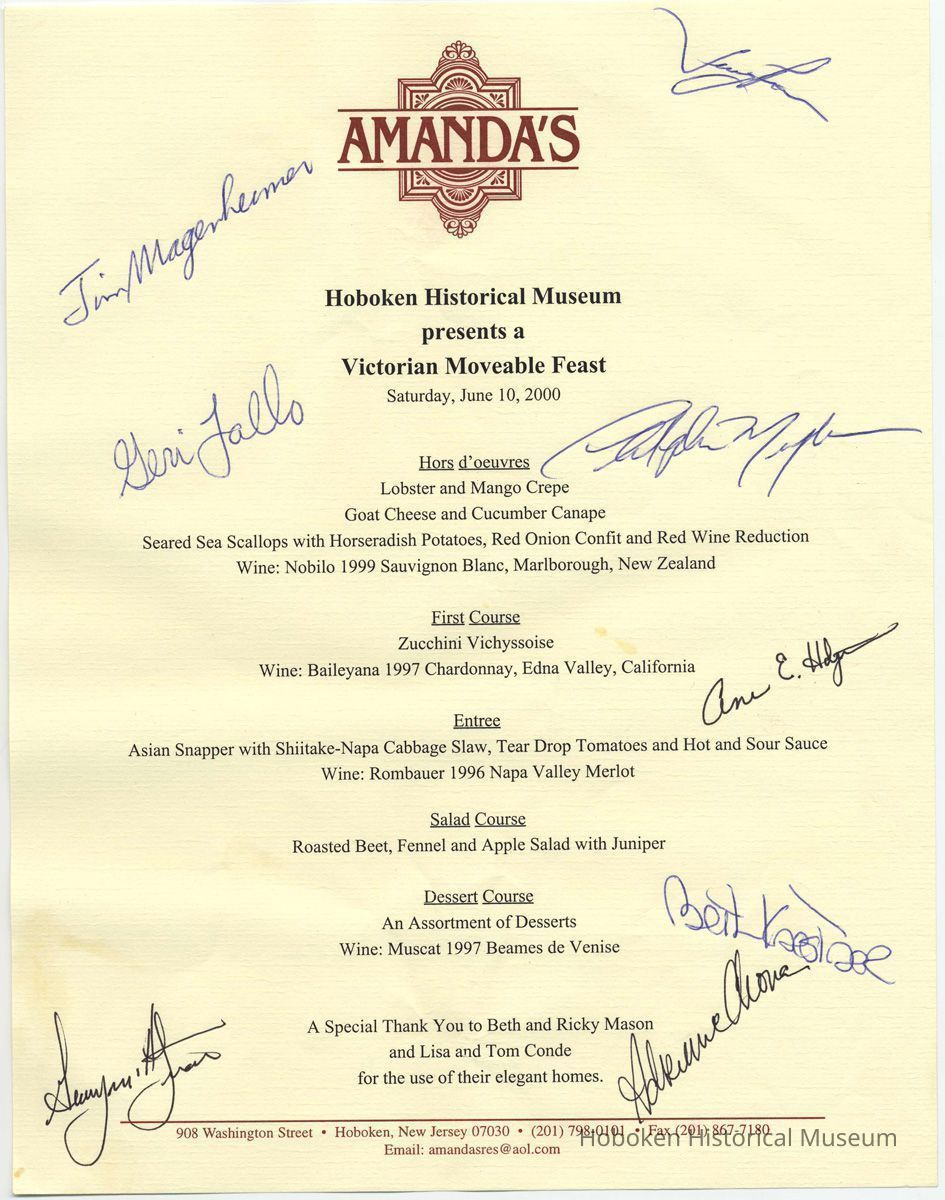 AMANDA'S
Jim Magenheimer
Hoboken Historical Museum
presents a
Victorian Moveable Feast
Saturday, June 10, 2000
Geri Fallo
Hors d'oeuvres
Lobster and Mango Crepe
Goat Cheese and Cucumber Canape
Seared Sea Scallops with Horseradish Potatoes, Red Onion Confit and Red Wine Reduction
Wine: Nobilo 1999 Sauvignon Blanc, Marlborough, New Zealand
First Course
Zucchini Vichyssoise
Wine: Baileyana 1997 Chardonnay, Edna Valley, California
E.
Entree
Asian Snapper with Shiitake-Napa Cabbage Slaw, Tear Drop Tomatoes and Hot and Sour Sauce
Wine: Rombauer 1996 Napa Valley Merlot
Salad Course
Roasted Beet, Fennel and Apple Salad with Juniper
Dessert Course
An Assortment of Desserts
Wine: Muscat 1997 Beames de Venise
Beth
Adrienne Choma
A Special Thank You to Beth and Ricky Mason
and Lisa and Tom Conde
for the use of their elegant homes.
908 Washington Street • Hoboken, New Jersey 07030 • (201) 798-0101 • Fax (201) 867-7180
Email: amandasres@aol.com
Hoboken Historical Museum